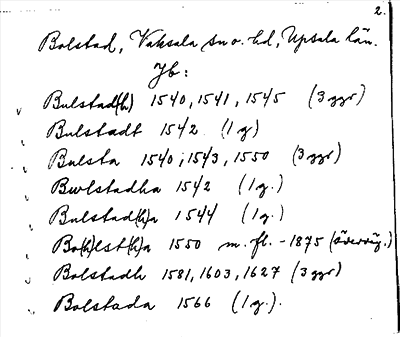 2.
Bolstad, Vaksala sn o. hd, Upsala län.
Jb:
v Bulstad(h) 1540, 1541, 1545 (3 ggr)
v Bulstadt 1542 (1 g)
v Bulsta 1540, 1543, 1550 (3 ggr)
v Bwlstadha 1542 (1 g.)
v Bulstad(h)a 1544 (1 g.)
v Bo(h)lst(h)a 1550 m. fl. - 1875 (överväg.)
v Bolstadh 1581, 1603, 1627 (3 ggr)
v Bolstada 1566 (1 g.).